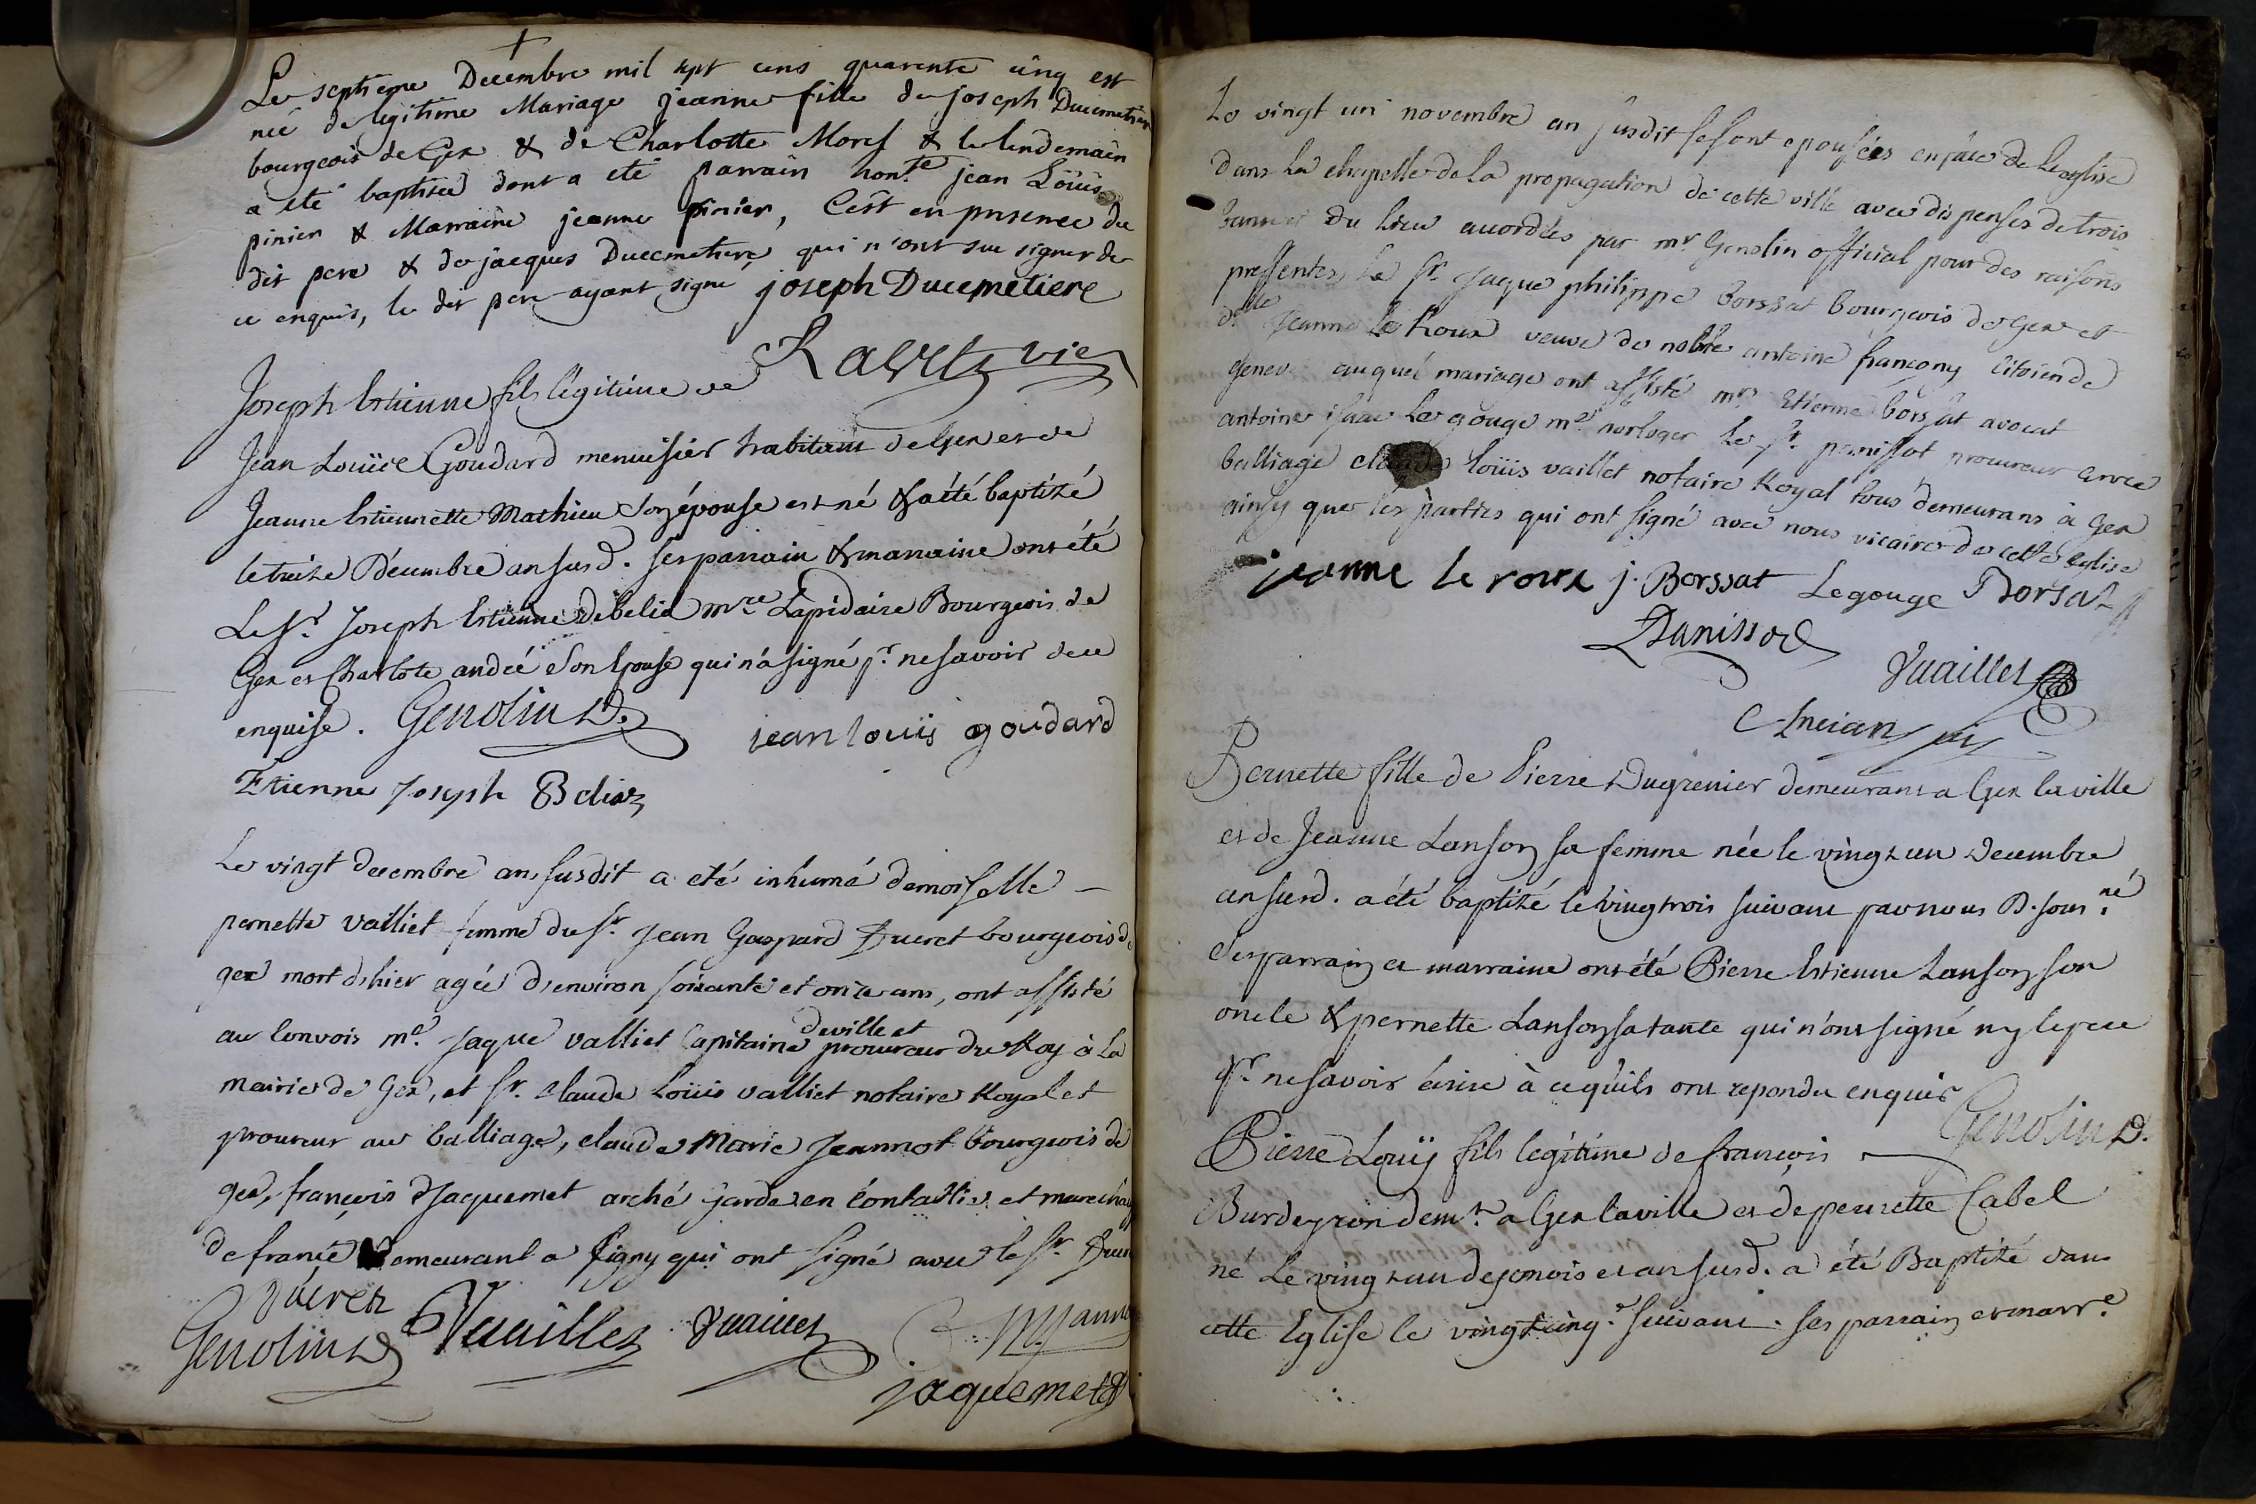 Le septieme Decembre mil sept cens quarente cinq est
née de legitime Mariage jeanne fille de joseph Ducemetiere
bourgeois de Gex & de Charlotte Morel & le lendemain
a été baptisée dont a eté parrain hon.te jean Loüis
pinier & Marraine jeanne pinier, C'est en presence du
dit pere & de jacques Ducemetiere qui n'ont sçu signer de
ce enquis, le dit pere ayant signé joseph Ducemetiere
Joseph Estienne fils légitime de
Jean Louïs Goudard menuisier habitant de Gex et de
Jeanne Estiennette Mathieu son épouse est né & a été baptizé
le treize Décembre an susd. ses parrain & marraine ont été
Le Sr. Joseph Estienne debelia mre. Lapidaire Bourgeois de
Gex et Charlote andré son Epouse qui n'a signé pr. ne savoir de ce
enquise. Genolin D.
jean louis goudard
Etienne Joseph Belia
Le vingt decembre an susdit a eté inhumé demoiselle
pernette valliet femme du Sr. Jean Gaspard Ducret bourgeois de
gex mort dhier agée d'environ soixante et onze ans, ont assisté
au convois me. Jaque valliet Capitaine de ville et procureur du Roy à la
mairie de Gex, et Sr. claude Loüis valliet notaire Royal et
procureur au balliage, claude Marie Jeannot bourgeois de
gex, françois Jaquemet arché garde en contablie et marechau
de france demeurant a Signy qui ont signé avec le Sr. Ducre
Ducret
Genolin D Vuaillet Vuaillet
jaquemet
Le vingt un novembre an susdit se sont epousées en face de leglise
dans la chapelle de la propagation de cette ville avec dispenses de trois
bannes du lieu accordées par mr. Genolin official pour des raisons
pressentes le Sr. Jaque philippe borssat bourgeois de Gex et
dlle Jeanne le Roux veuve de noble antoine françony Citoien de
geneve auquel mariage ont assisté mrs Etienne borssat avocat
antoine isaac Le gouge me. horloger le Sr. panissot procureur
balliage claude loüis vaillet notaire Royal tous demeurans à Gex
ainsy que les parties qui ont signé avec nous vicaire de cette Eglise
jeanne le roux j. Borssat Legouge Borsat
Panissod
Vuaillet
Ancian
Pernette fille de Pierre Dugrenier demeurant a Gex la ville
et de Jeanne Lanson sa femme née le vingt un Decembre
an susd. a été baptizé le vingt trois suivant par nous D. sous né.
Ses parrain et marraine ont été Pierre Estienne Lanson son
oncle & pernette Lanson sa tante qui n'ont signé ny le pere
pr. ne savoir écrire à ce qu'ils ont repondu enquis
Genolin D.
Pierre Louïs fils légitime de françois
Burdeyron demt. a Gex la ville et de pernette Cabel
né Le vingt un de ce mois et an susd. a été Baptizé dans
cette Eglise le vingt cinq.e suivant. ses parrain et marr.e